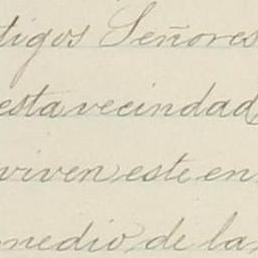 tigos Señores
esta vecindad
viven este en
medio de la